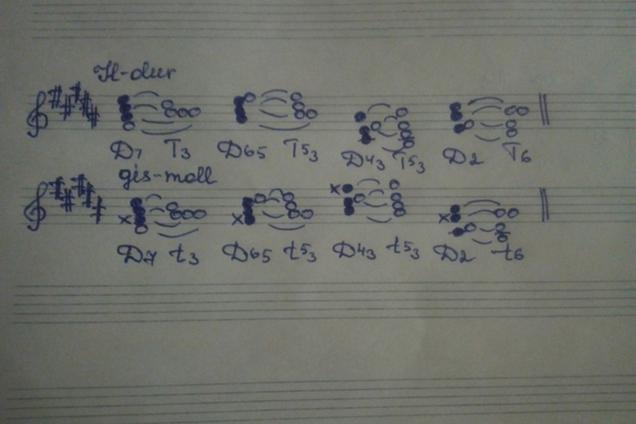 H-dur
D7 T3 D65 T53 D43 T53 D2 T6
gis-moll
D7 t3 D65 t53 D43 t53 D2 t6